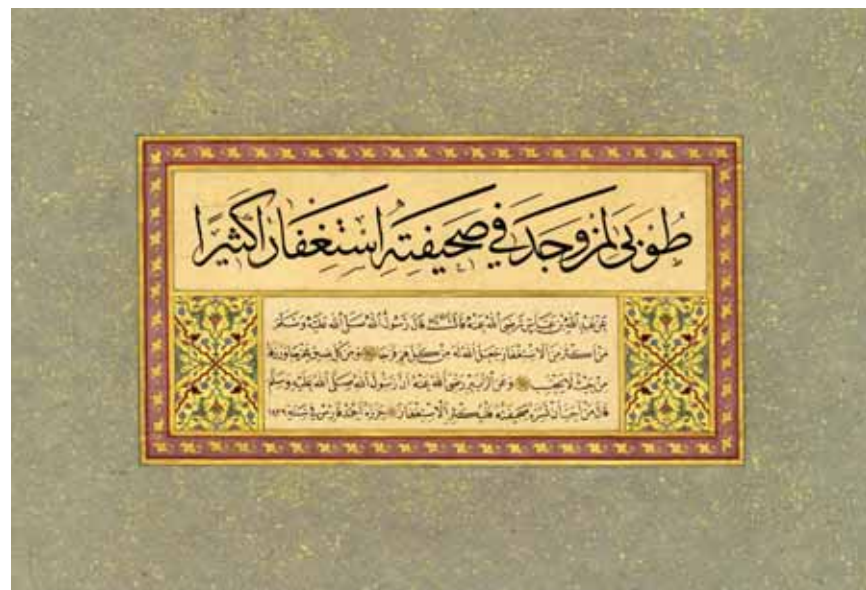 طُوبَى لِمَنْ وَجَدَ فِي صَحِيفَتِهِ اسْتِغْفَارًا كَثِيرًا
عن عبد الله بن عباس رضى الله عنه قال قال رسول الله صلى الله عليه وسلم
من اكثر من الاستغفار جعل الله له من كل هم فرجا ومن كل ضيق مخرجا ورزقه
من حيث لا يحتسب وعن الزبير رضى الله عنه ان رسول الله صلى الله عليه وسلم
قال من احب ان تسره صحيفته فليكثر الاستغفار حرره احمد فارس في سنة